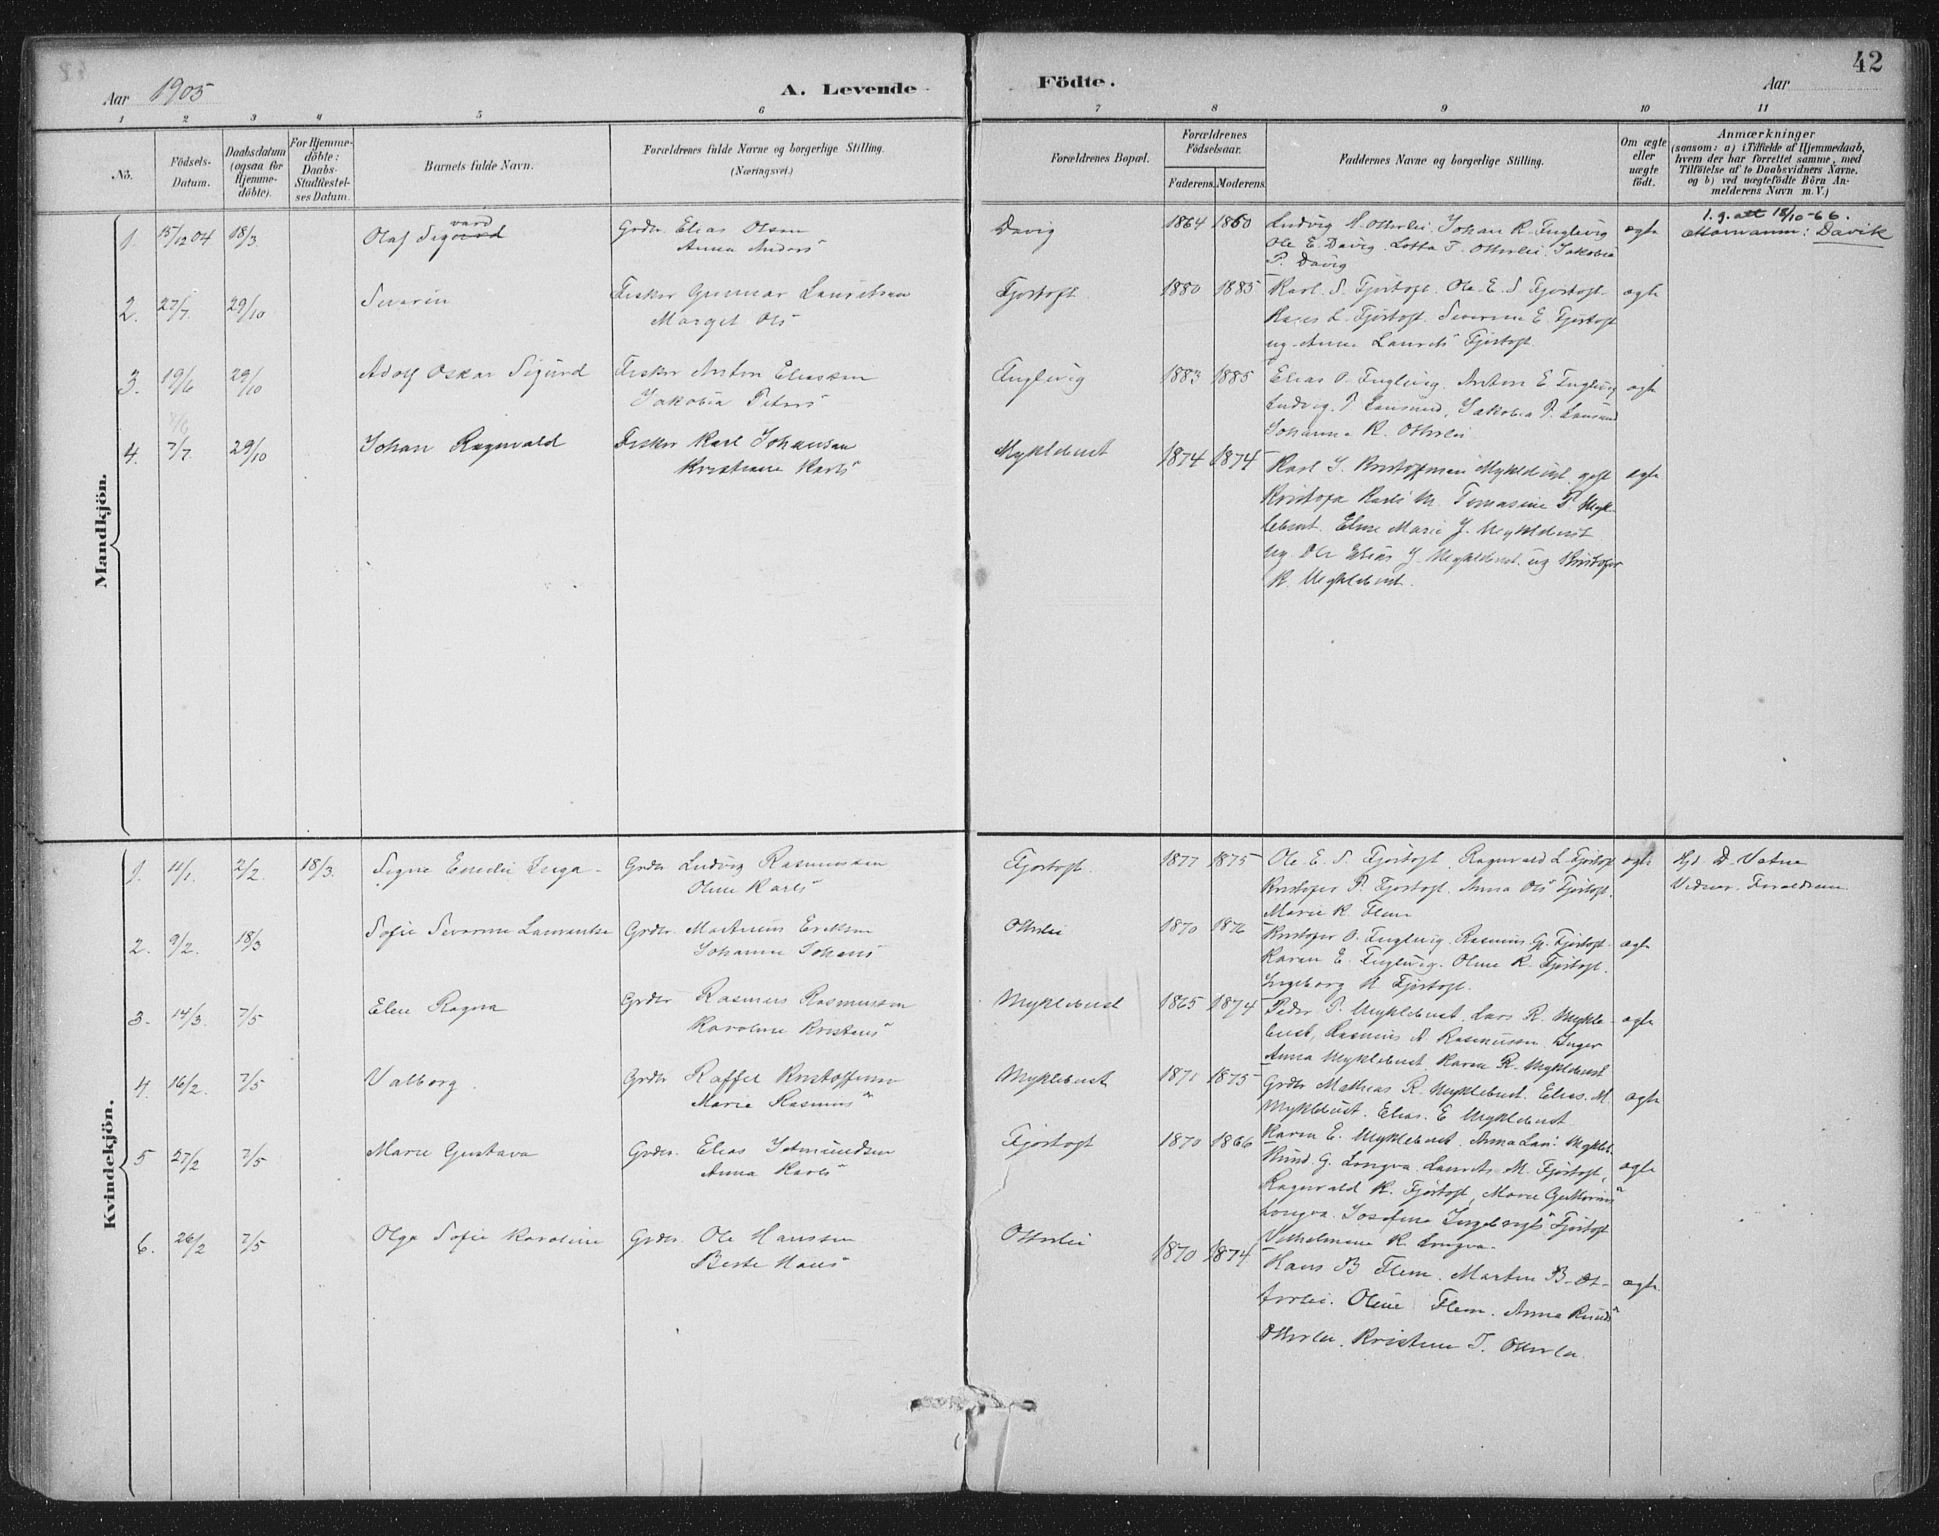 42
Aar 1905
A. Levende
Födte.
Aar
1 2 3 4 5 6 7 8 9 10 11
No.
Födsels-
Datum.
Daabsdatum
(ogsaa for
Hjemme-
döbte).
For Hjemme-
döbte:
Daabs-
Stadfæstel-
ses Datum.
Barnets fulde Navn.
Forældrenes fulde Navne og borgerlige Stilling.
(Næringsvei.)
Forældrenes Bopæl.
Forældrenes
Födselsaar.
Faderens. Moderens.
Faddernes Navne og borgerlige Stilling.
Om ægte
eller
uægte
födt.
Anmærkninger
(saasom: a) i Tilfælde af Hjemmedaab,
hvem der har forrettet samme, med
Tilföielse af to Daabsvidners Navne.
og b) ved uægtefödte Börn An-
melderens Navn m. V.)
Mandkjön.
1. 15/12 04 18/3 Olaf Sigurd vard
Grdr. Elias Olsen
Anna Anders"
Davig 1864 1860
Ludvig H. Otterlei. Johan R. Fuglevig
Ole E. Davig. Lotta T. Otterlei. Jakobia
P. Davig
ægte
1. g. att 18/10-66.
Davik
2. 27/7 29/10 Severin
Fisker Gunnar Lauritsen
Marget Ols"
Fjørtoft 1880 1885
Karl S. Fjørtoft. Ole E. S. Fjørtoft
L. Fjørtoft. Severine E. Fjørtoft
og Anne Laurits" Fjørtoft.
ægte
3. 19/6 29/10 Adolf Oskar Sigurd
Fisker Anton Eliassen
Jakobia Peters"
Fuglevig 1883 1885
Elias O. Fuglevig. Anton E. Fuglevig
Ludvig P. Jakobia P.
Johanne K. Otterlei
ægte
4. 7/7. 29/10 Johan Ragnvald
Fisker Karl Johansen
Kristiane Karls"
Myklebust 1874 1874
Karl J. Kristoffersen Myklebust, gift
Karls" M. Tomasine P. Myk-
lebust. Eline Marie J. Myklebust
Ole Elias J. Myklebust og Kristofer
K. Myklebust.
ægte
Kvindekjön.
1. 11/1. 2/2. 18/3. Signe Emelie Inga
Grdr Ludvig Rasmussen
Oline Karls"
Fjørtoft. 1877 1875
Ole E. S. Fjørtoft, Ragnvald L. Fjørtoft
Kristofer P. Fjørtoft. Anna Ols" Fjørtoft.
Marie K. Flem
ægte
Hjd. D. Vatne
Vidner. Forældrene
2. 9/2. 18/3 Sofie Severine Laurentse
Grdr. Martinus Eriksen
Johanne Johans"
Otterlei 1870 1876
Kristofer O. Fuglevig. Rasmus G. Fjørtoft
Karen E. Fuglevig. Oline K. Fjørtoft.
Ingeborg Fjørtoft.
ægte
3. 14/3. 7/5 Eline Ragna
Grdr Rasmus Rasmussen
Karoline Kristens"
Myklebust 1865 1874
Peder P. Myklebust. Lars R. Mykle-
bust, Rasmus A. Rasmussen. Inger
Anna Myklebust. Karen R. Myklebust
ægte
4. 16/2. 7/5 Valborg.
Grdr Raffel Kristoffersen
Marie Rasmus"
Myklebust 1871 1875
Grdr Mathias R. Myklebust. Elias. M.
Myklebust. Elias. E. Myklebust
Karen E. Myklebust. Anna Lar: Mykleb.
ægte
5 27/2 7/5 Marie Gustava
Grdr. Elias Jetmundsen
Anna Karls"
Fjørtoft 1870 1866
Knud G. Longva. Laurits M. Fjørtoft,
Ragnvald K. Fjørtoft, Marie
Longva. Josefine Ingebrigts" Fjørtoft
Vilhelmine K. Longva.
ægte
6. 26/2 7/5 Olga Sofie Karoline
Grdr. Ole Hanssen
Berte Hans"
Otterlei 1870 1874
Hans B. Flem. Martin B. Ot-
terlei. Oline Flem. Anna Knuds"
Otterlei. Kristine T. Otterlei.
ægte.